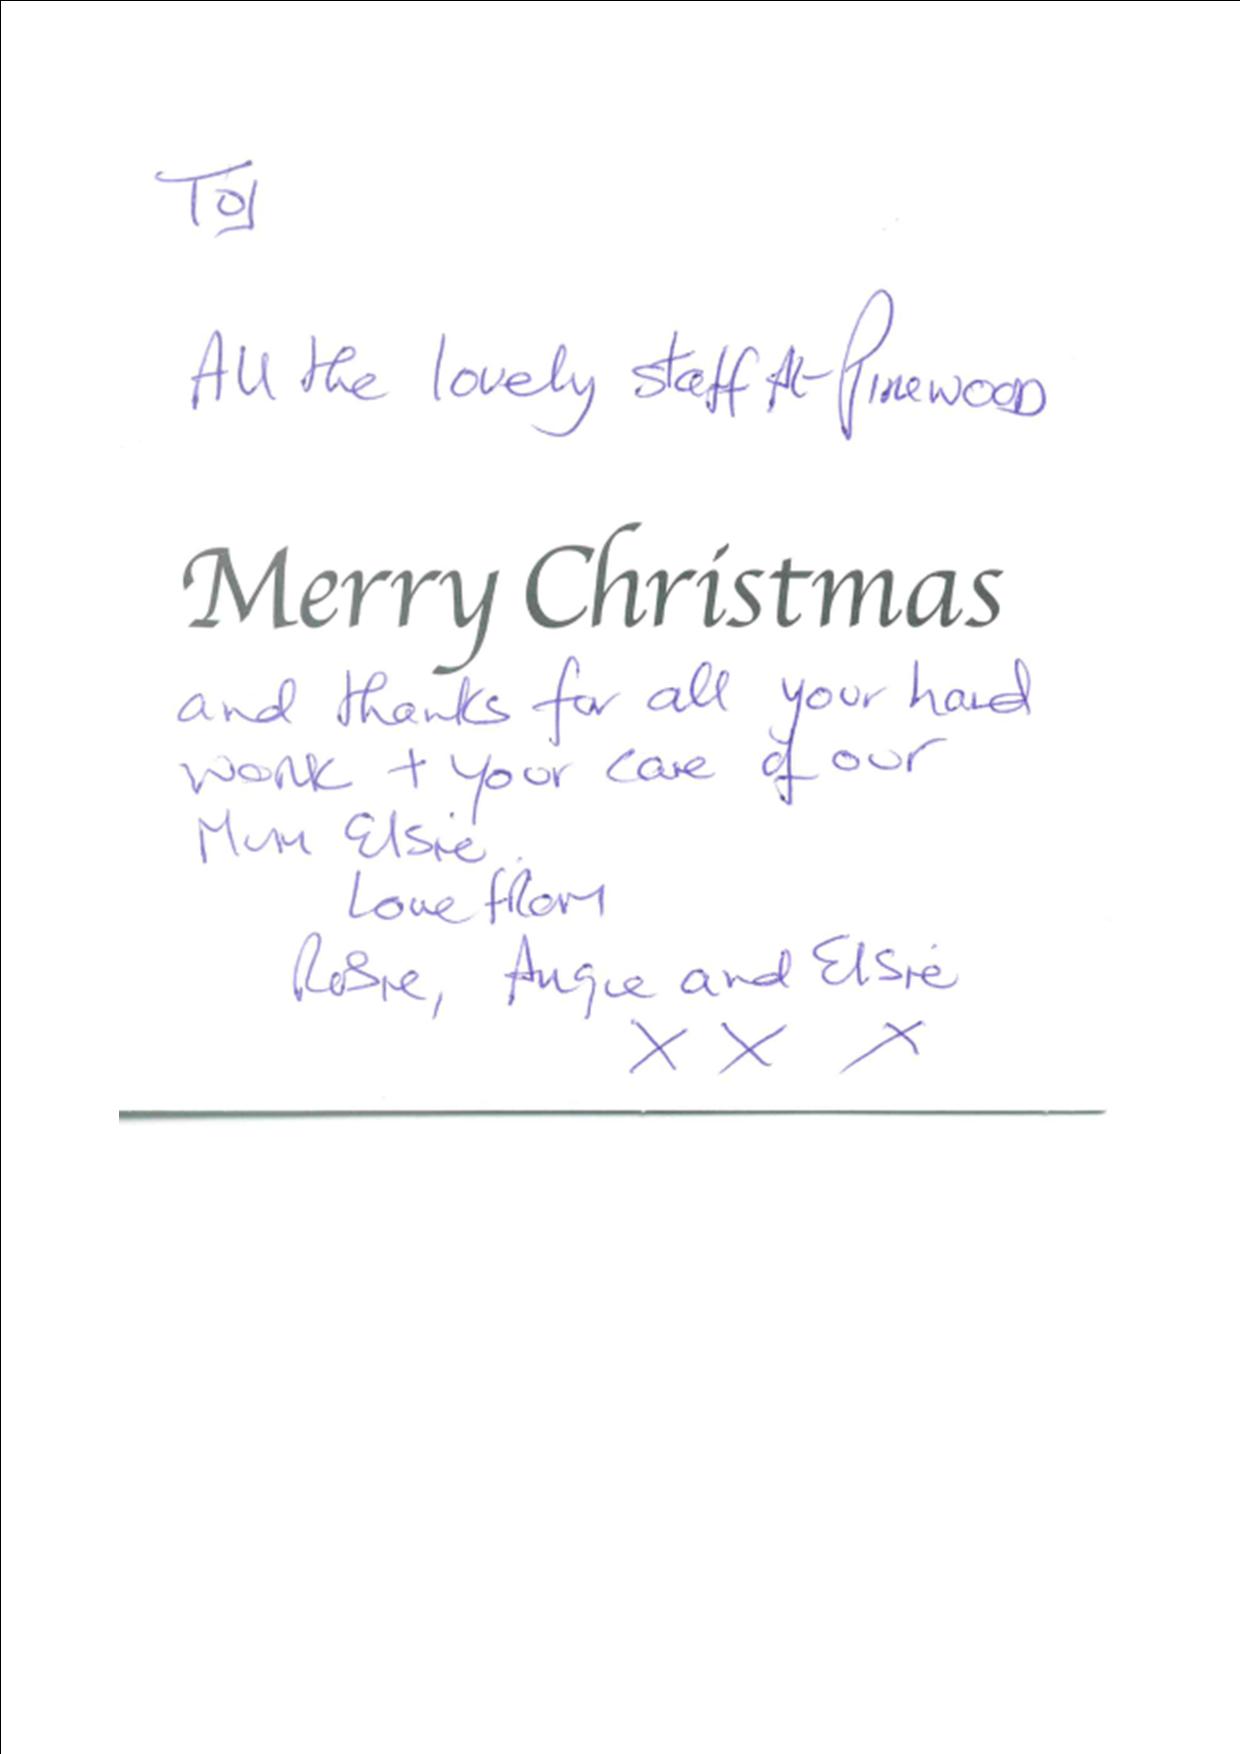 To/
All the lovely staff At Pinewood
Merry Christmas
and thanks for all your hard
work + your care of our
Mum Elsie.
Love from
Rosie, Angie and Elsie
X X X